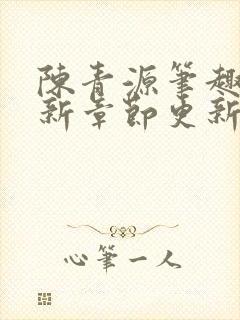 陳青源筆趣
新章節更新
心筆一人